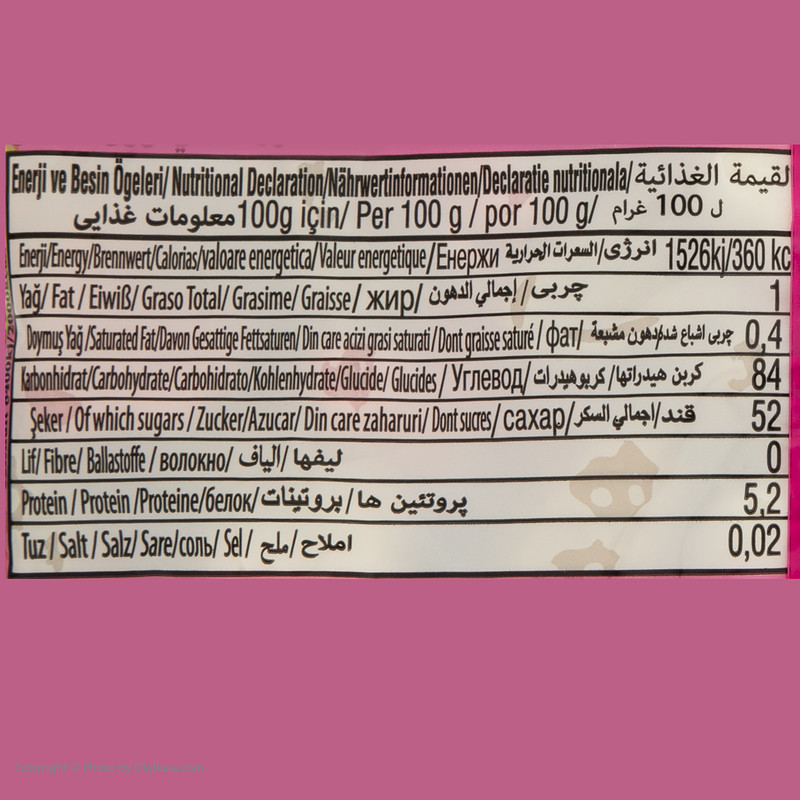 Enerji ve Besin Ögeleri/ Nutritional Declaration/Nährwertinformationen/Declaratie nutritionala/ لقيمة الغذائية
معلومات غذایی 100g için/ Per 100 g / por 100 g/ ل 100 غرام
Enerji/Energy/Brennwert/Calorias/valoare energetica/Valeur energetique/Енержи انرژی/السعرات الحرارية 1526kj/360 kc
Yağ/ Fat / Eiwiß/ Graso Total/ Grasime/ Graisse/ жир/ چربی/إجمالي الدهون 1
Doymuş Yağ /Saturated Fat/Davon Gesattige Fettsaturen/ Din care acizi grasi saturati/ Dont graisse saturé / фат/ چربی اشباع شده/دهون مشبعة 0,4
Karbonhidrat/Carbohydrate/Carbohidrato/Kohlenhydrate/Glucide/ Glucides / Углевод/ کربن هیدراتها/ كربوهيدرات 84
Şeker / Of which sugars / Zucker/Azucar/ Din care zaharuri/ Dont sucres/ сахар/ قند/إجمالي السكر 52
Lif/ Fibre/ Ballastoffe / волокно/ لیفها/ الياف 0
Protein / Protein /Proteine/белок/ پروتئین ها/بروتينات 5,2
Tuz / Salt / Salz/ Sare/соль/ Sel / املاح/ملح 0,02